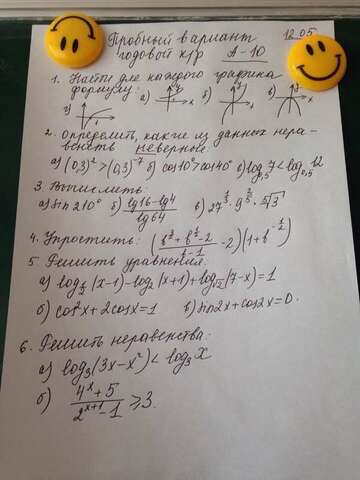 Пробный вариант 12.05
годовой к/р А-10
1. Найти для каждого графика
формулу: а) б) в)
г)
2. Определить, какие из данных нера-
венств неверной
а) (0,3)² > (0,3)⁻⁷ б) cos10° > cos40° в) log₀,₅ 7 < log₀,₅ 12
3. Вычислить:
а) sin 210° б) (lg16 - lg4)/lg64 в) 27^(1/3) · 9^(2/5) · ⁵√3
4. Упростить:
5. Решить уравнения:
а) log (x-1) - log₂(x+1) + log_√2 (7-x) = 1
б) cos²x + 2cosx = 1 в) sin2x + cos2x = 0.
6. Решить неравенства:
а) log₃(3x - x²) < log₃ x
б) (4ˣ + 5)/(2ˣ⁺¹ - 1) ≥ 3.